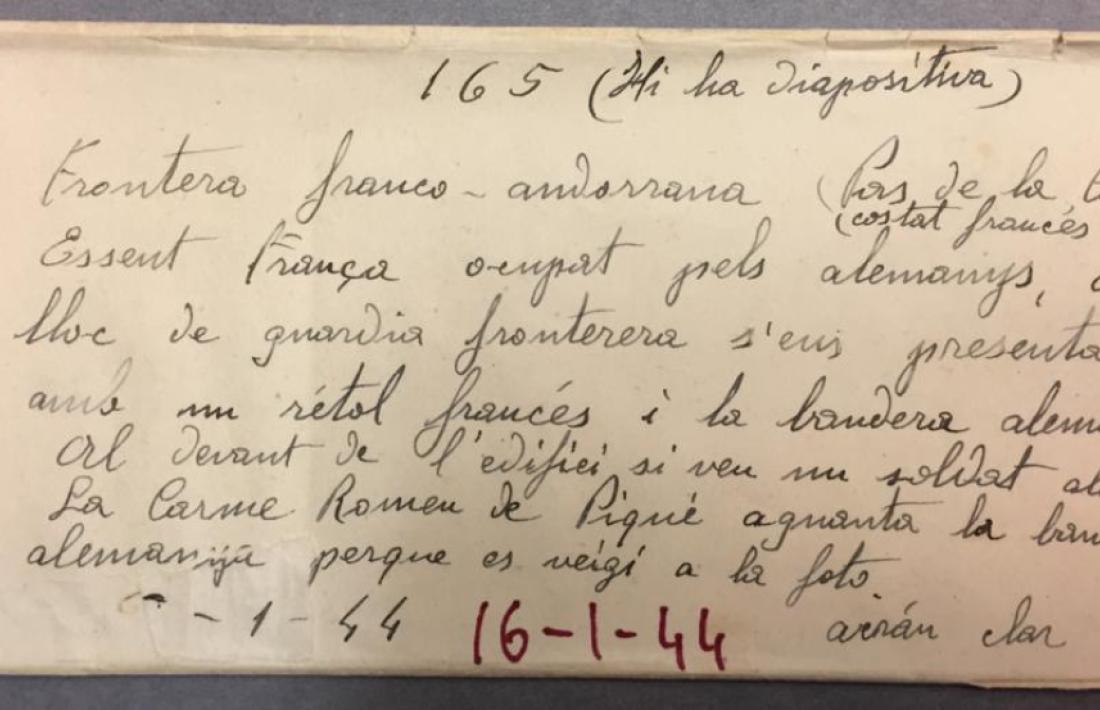 165 (Hi ha diapositiva)
Frontera franco-andorrana (Pas de la
(costat francés
Essent França ocupat pels alemanys,
lloc de guardia fronterera s'ens presenta
amb un rétol francés i la bandera alem
Al devant de l'edifici si veu un soldat al
La Carme Romeu de Piqué aguanta la ban
alemanya perque es veigi a la foto.
- 1 - 44 16-1-44 clar